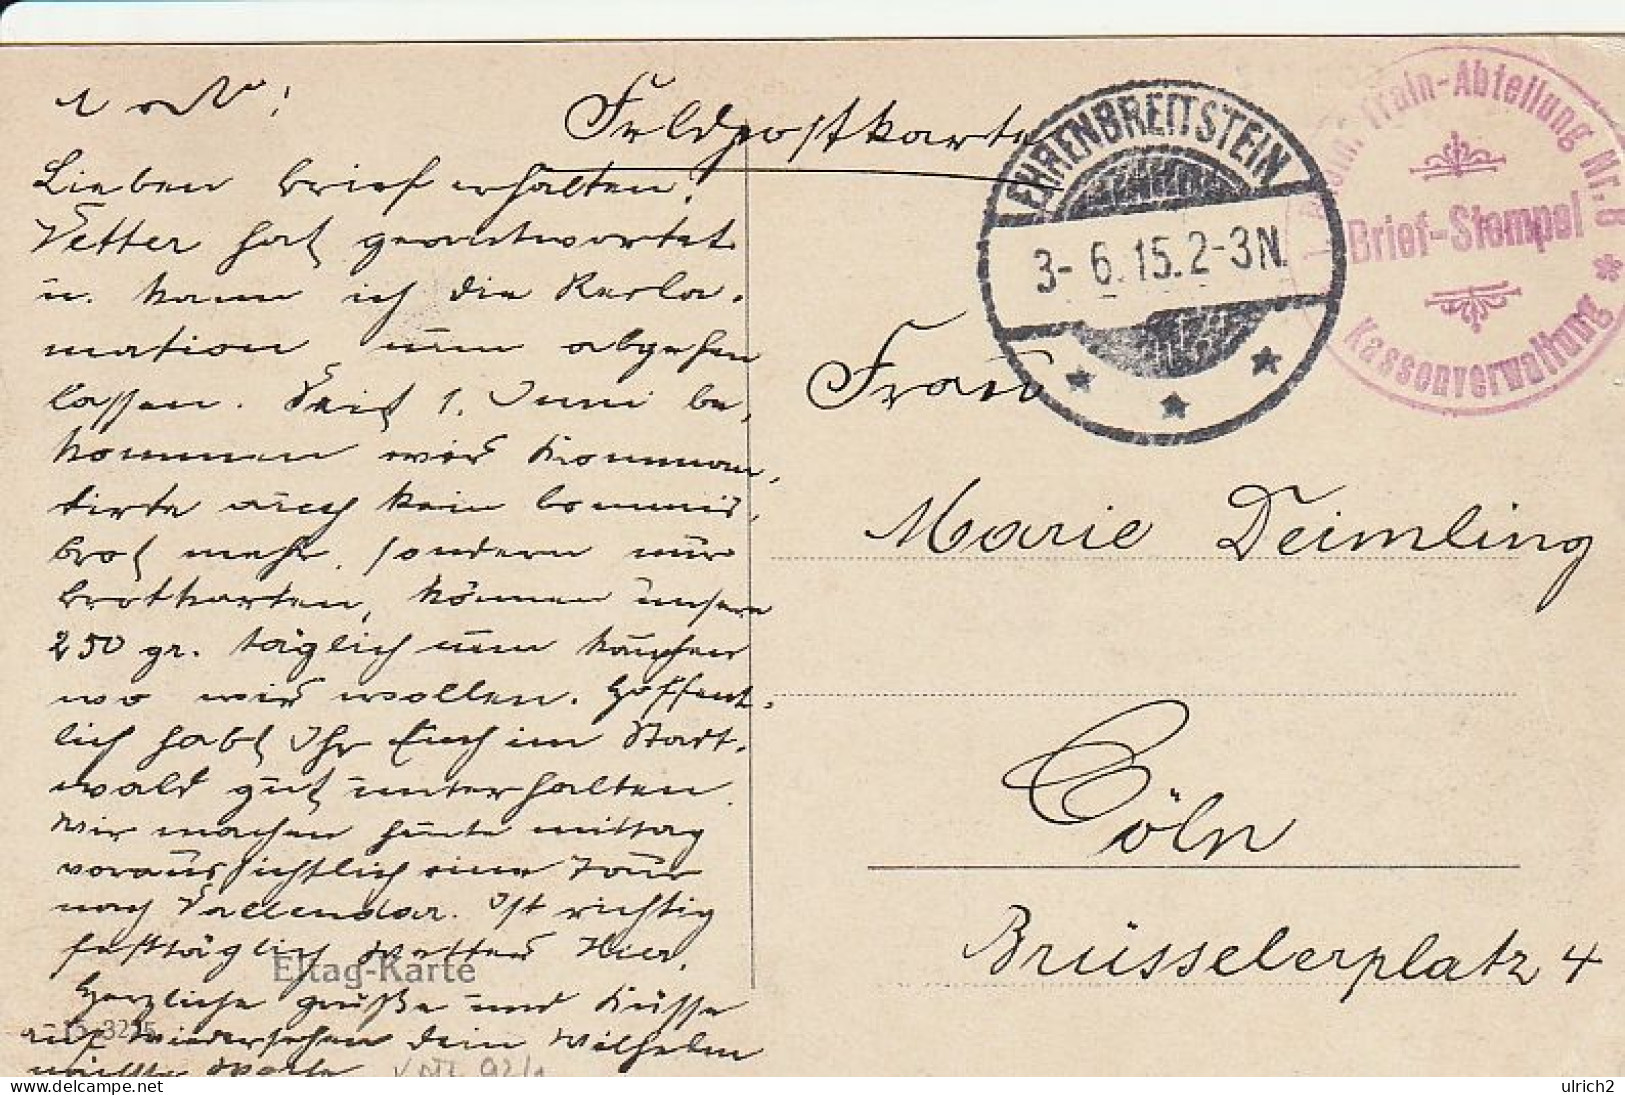 Feldpostkarte
Lieben Brief erhalten,
Vetter hat geantwortet
u. kann ich die Rekla-
mation nun abgehen
lassen. Seit 1. Juni be-
kommen wir Komman-
dirte auch kein Commis-
brot mehr, sondern nur
Brotkarten, können unsere
250 gr. täglich nun kaufen
wo wir wollen. Hoffent-
lich habt Ihr Euch im Stadt-
wald gut unterhalten.
Wir machen heute mittag
voraussichtlich eine Tour
nach Vallendar. Ist richtig
festtäglich Wetter hier.
Herzliche Grüße und Küsse
auf Wiedersehen Dein Wilhelm
nächste Woche
Eltag-Karte
EHRENBREITSTEIN
3-6.15.2-3N.
Train-Abteilung Nr. 8
Brief-Stempel
Kassenverwaltung
Frau
Marie Deimling
Cöln
Brüsselerplatz 4
delcampe.net
ulrich2